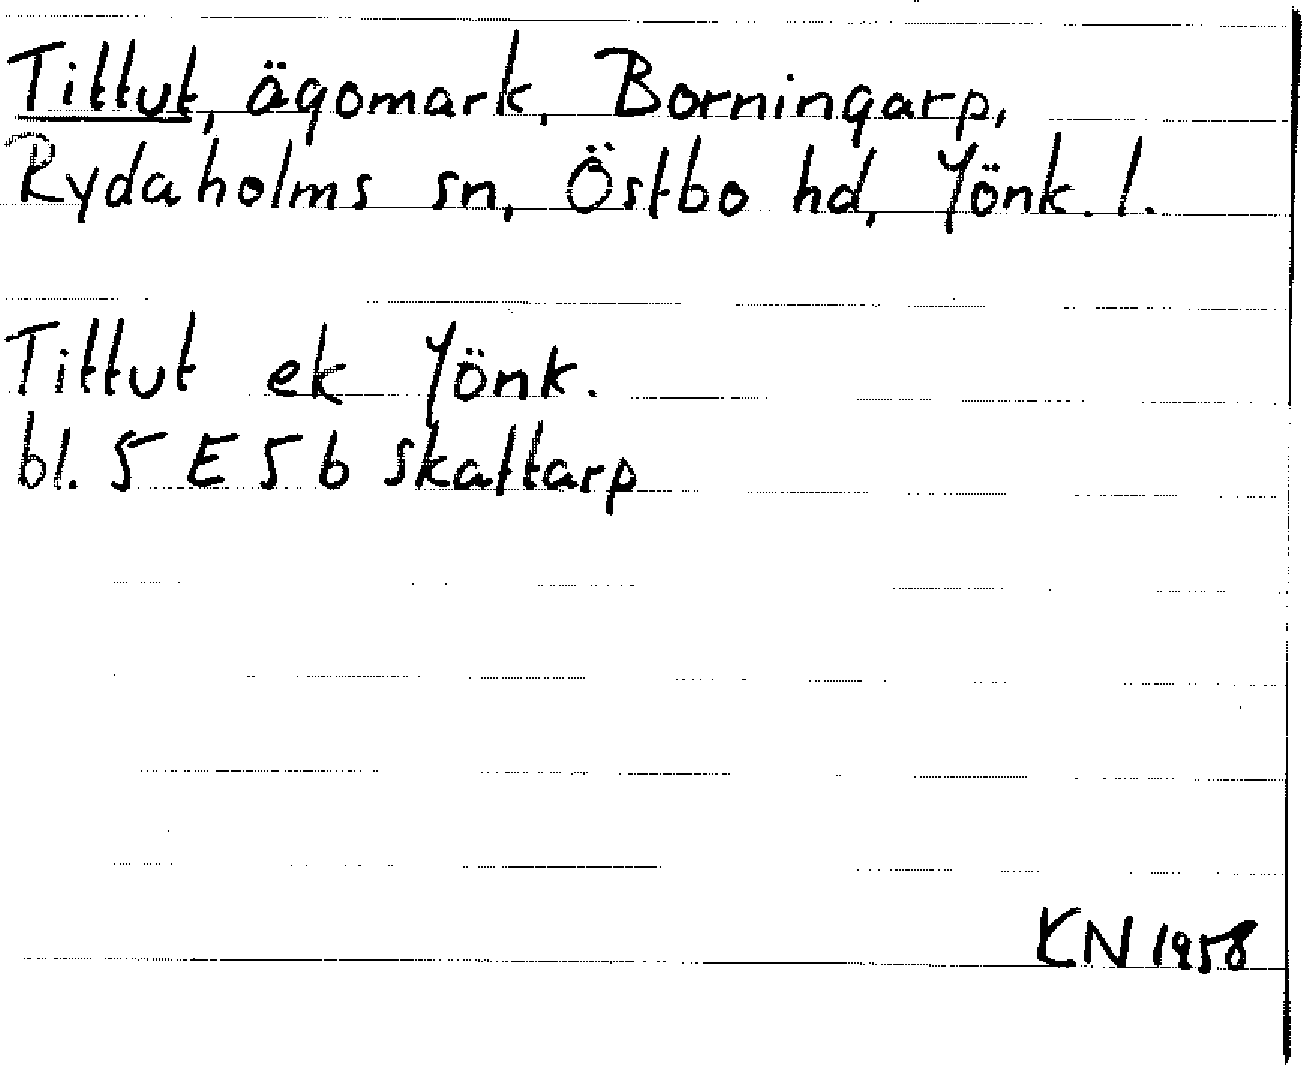 Tittut, ägomark, Borningarp,
Rydaholms sn, Östbo hd, Jönk. l.
Tittut ek Jönk.
bl. 5 E 5 b Skattarp
KN 1958